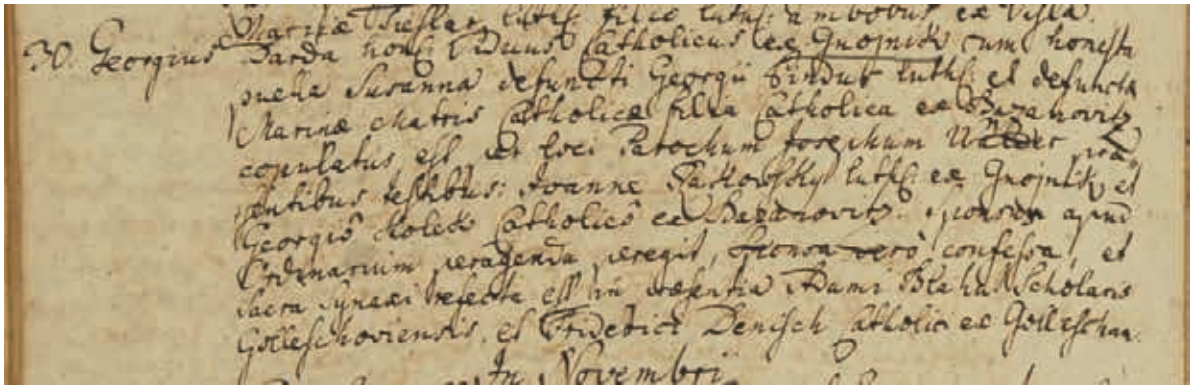 Marinæ luth: filia luth: ambobus ex Visla.
30. Georgius Darda hon: Viduus Catholicus ex Gnojnik cum honesta
puella Susanna defuncti Georgii luth: et defuncta
Marinæ Matris Catholicæ filia Catholica ex Bazanovitz
copulatus est, loci Parochum Josephum præ
sentibus testibus: Joanne luth: ex Gnojnik, et
Georgio Catholico ex Bazanovitz. sponsus apud
Ordinarium peragenda peregit, Sponsa vero confessa, et
Sacra Synaxi refecta est in præsentia Adami Blahut Scholaris
Golleschoviensis, et Friderici Denisch Catholic ex Golleschau.
In Novembri